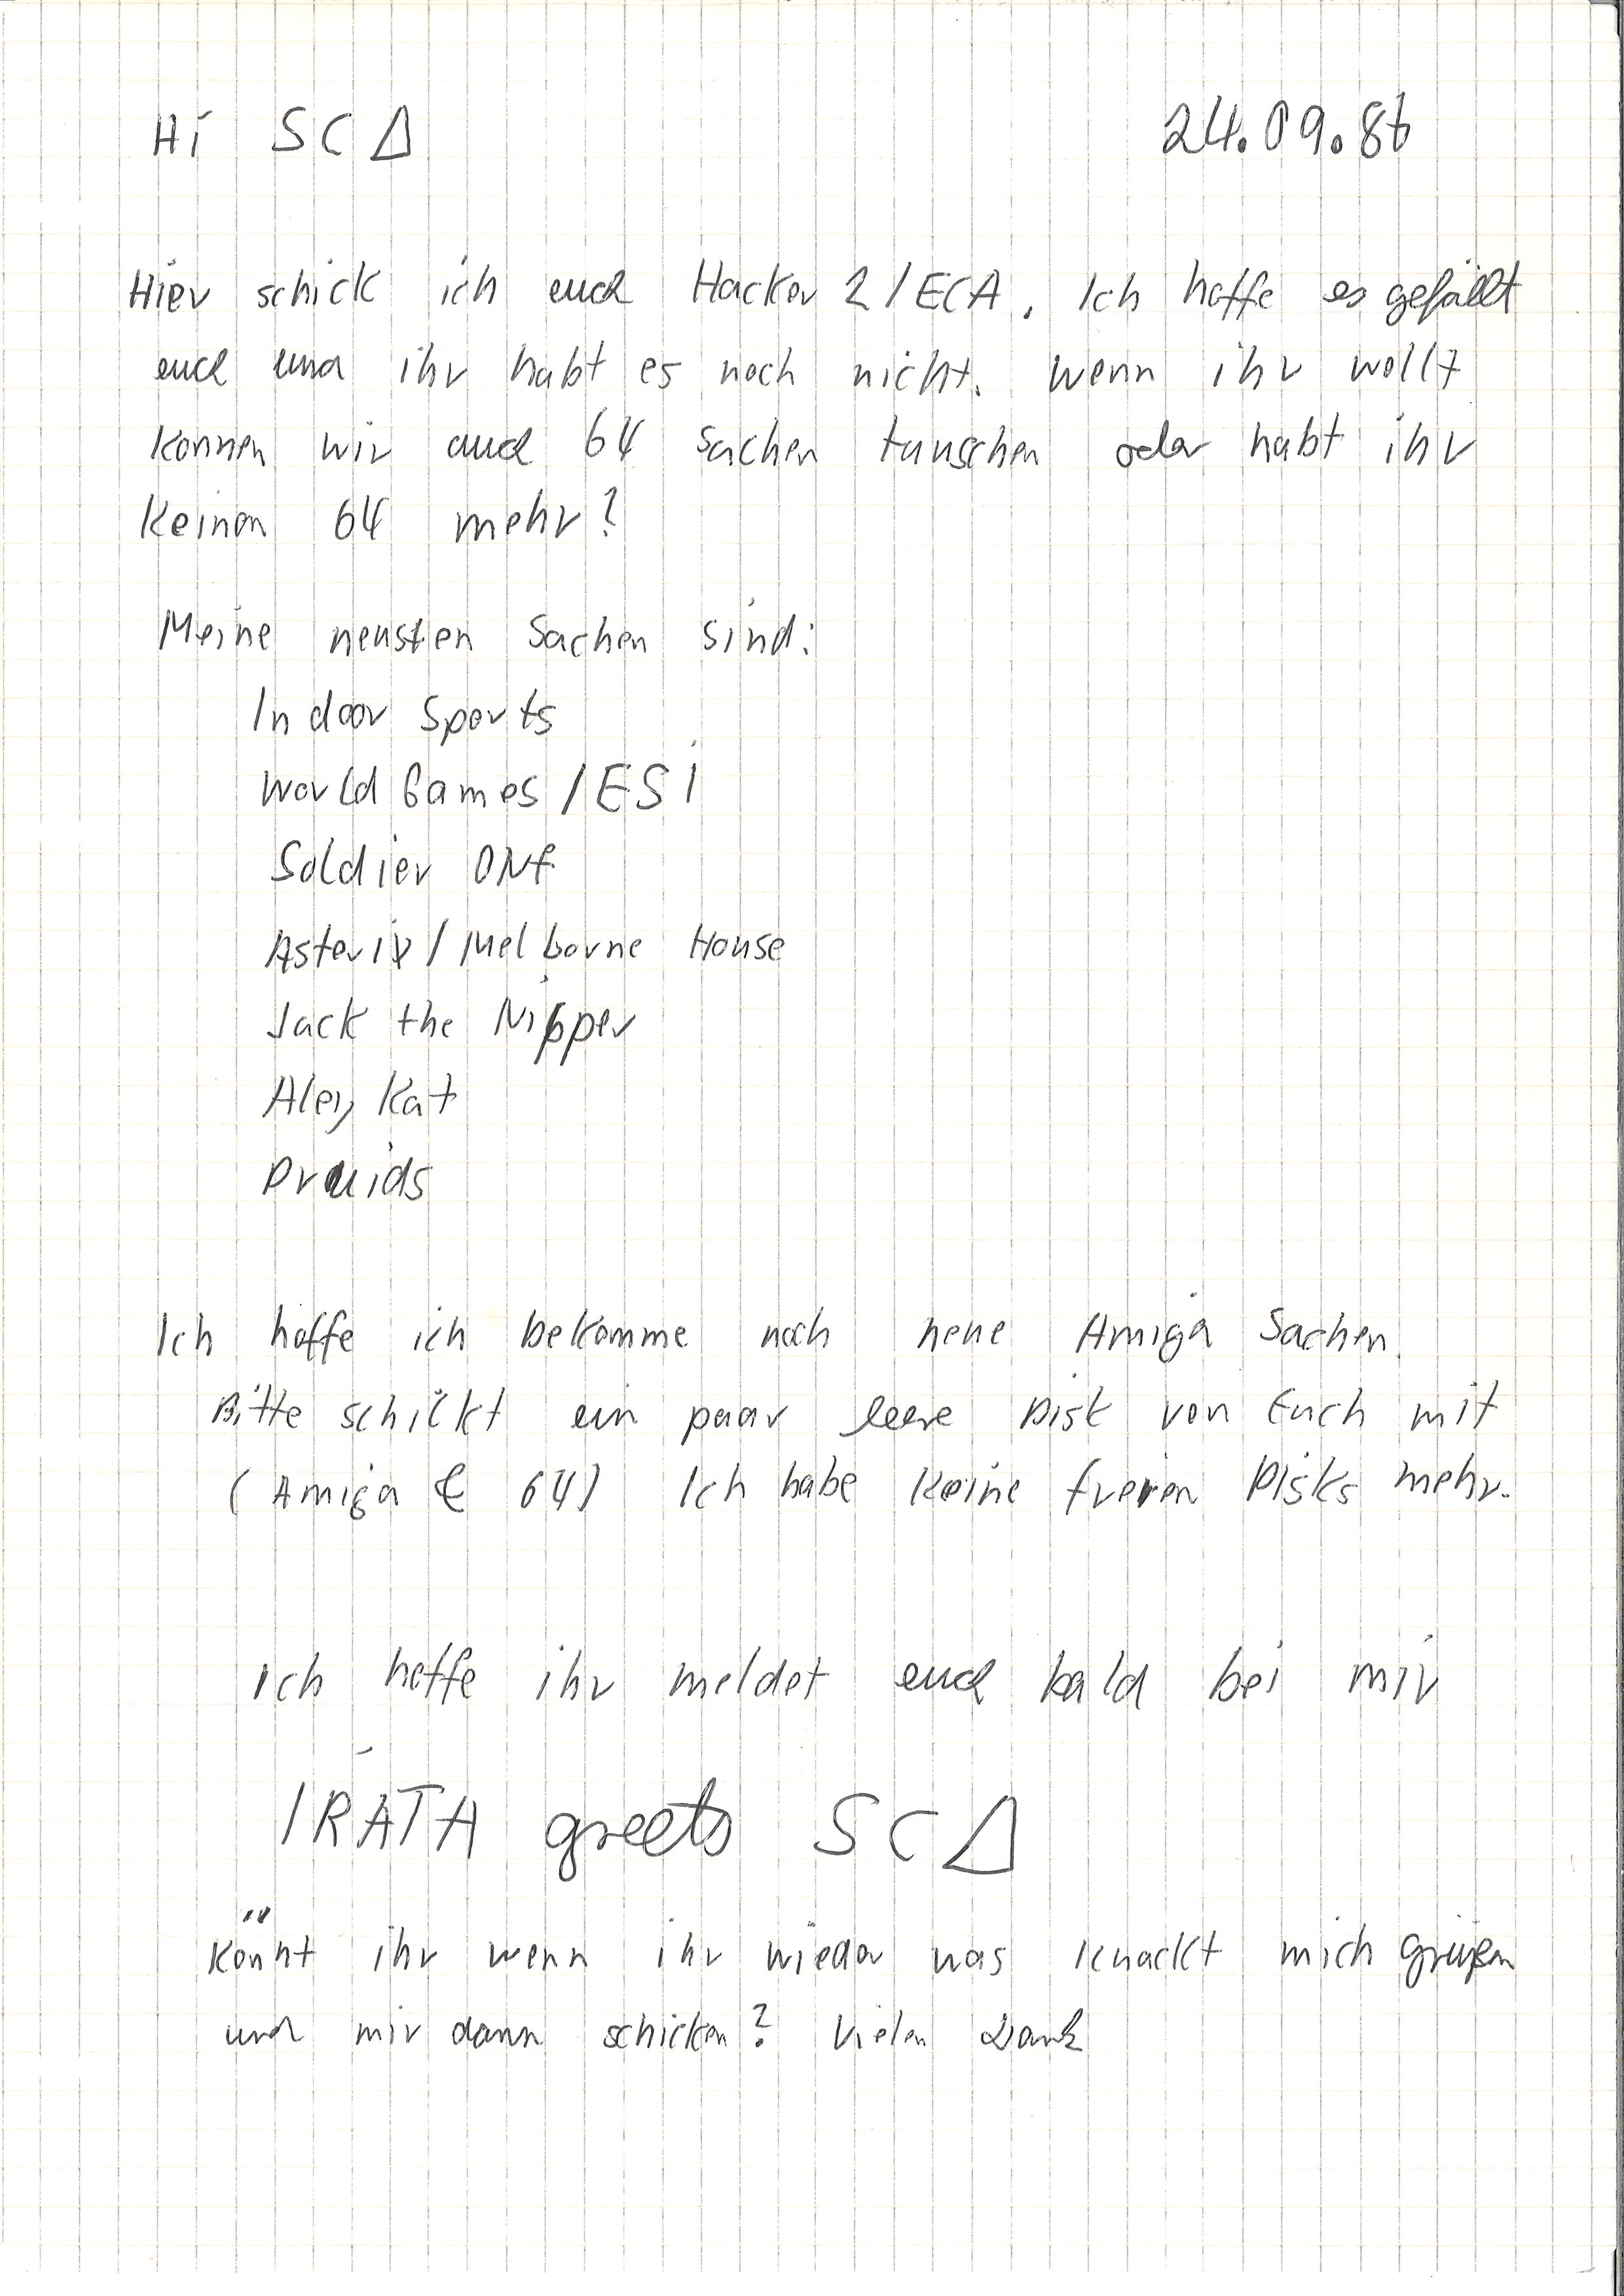 Hi SCA 24.09.86
Hier schick ich euch Hacker 2 / ECA. Ich hoffe es gefällt
euch und ihr habt es noch nicht. Wenn ihr wollt
können wir auch 64 Sachen tauschen oder habt ihr
keinen 64 mehr?
Meine neusten Sachen sind:
Indoor Sports
World Games / ESI
Soldier ONE
Asterix / Melborne House
Jack the Nipper
Aley Kat
Druids
Ich hoffe ich bekomme noch neue Amiga Sachen.
Bitte schickt ein paar leere Disk von Euch mit
(Amiga & 64) Ich habe keine freien Disks mehr.
Ich hoffe ihr meldet euch bald bei mir
IRATA greets SCA
Könnt ihr wenn ihr wieder was knackt mich grüßen
und mir dann schicken? Vielen Dank